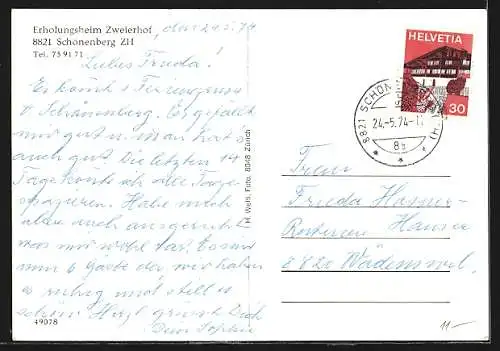 Erholungsheim Zweierhof
8821 Schönenberg ZH
Tel. 75 91 71
den 24.5.74
Liebes Frieda!
Es kommt 1 Feriengruss
v. Schönenberg. Es gefällt
mir gut u. man hat es
auch gut. Die letzten 14
Tage konnte ich alle Tage
spazieren. Habe mich
aber auch ausgeruht
was mir wohl tat. Es sind
nur 6 Gäste da wir haben
es ruhig und still u.
schön. Herzl. grüsst Dich
Deine Sophie
49078
H. Welti, Foto, 8048 Zürich
HELVETIA
30
8821 SCHÖNENBERG (ZH)
24.-5.74-1
8b
Frau
Frieda Hauser-
Hauser
8820 Wädenswil
11-